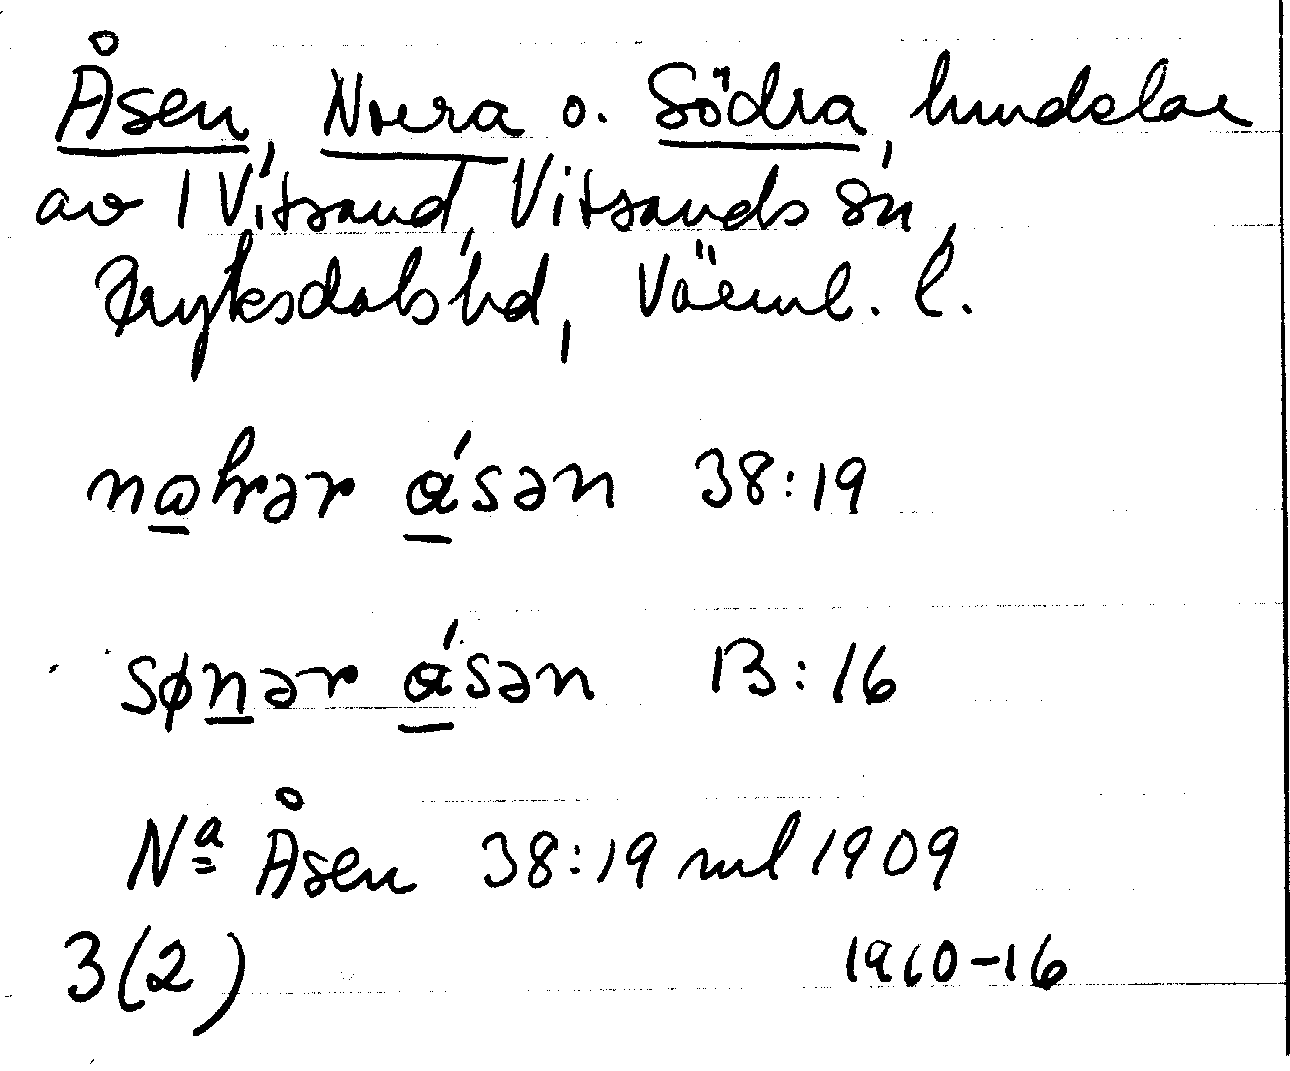 Åsen, Norra o. Södra, hmdelar
av 1 Vitsand, Vitsands sn,
Fryksdals hd, Värml. l.
nahrər ásən 38:19
sønər ásən 13:16
Nª Åsen 38:19 ml 1909
3(2) 1960-16